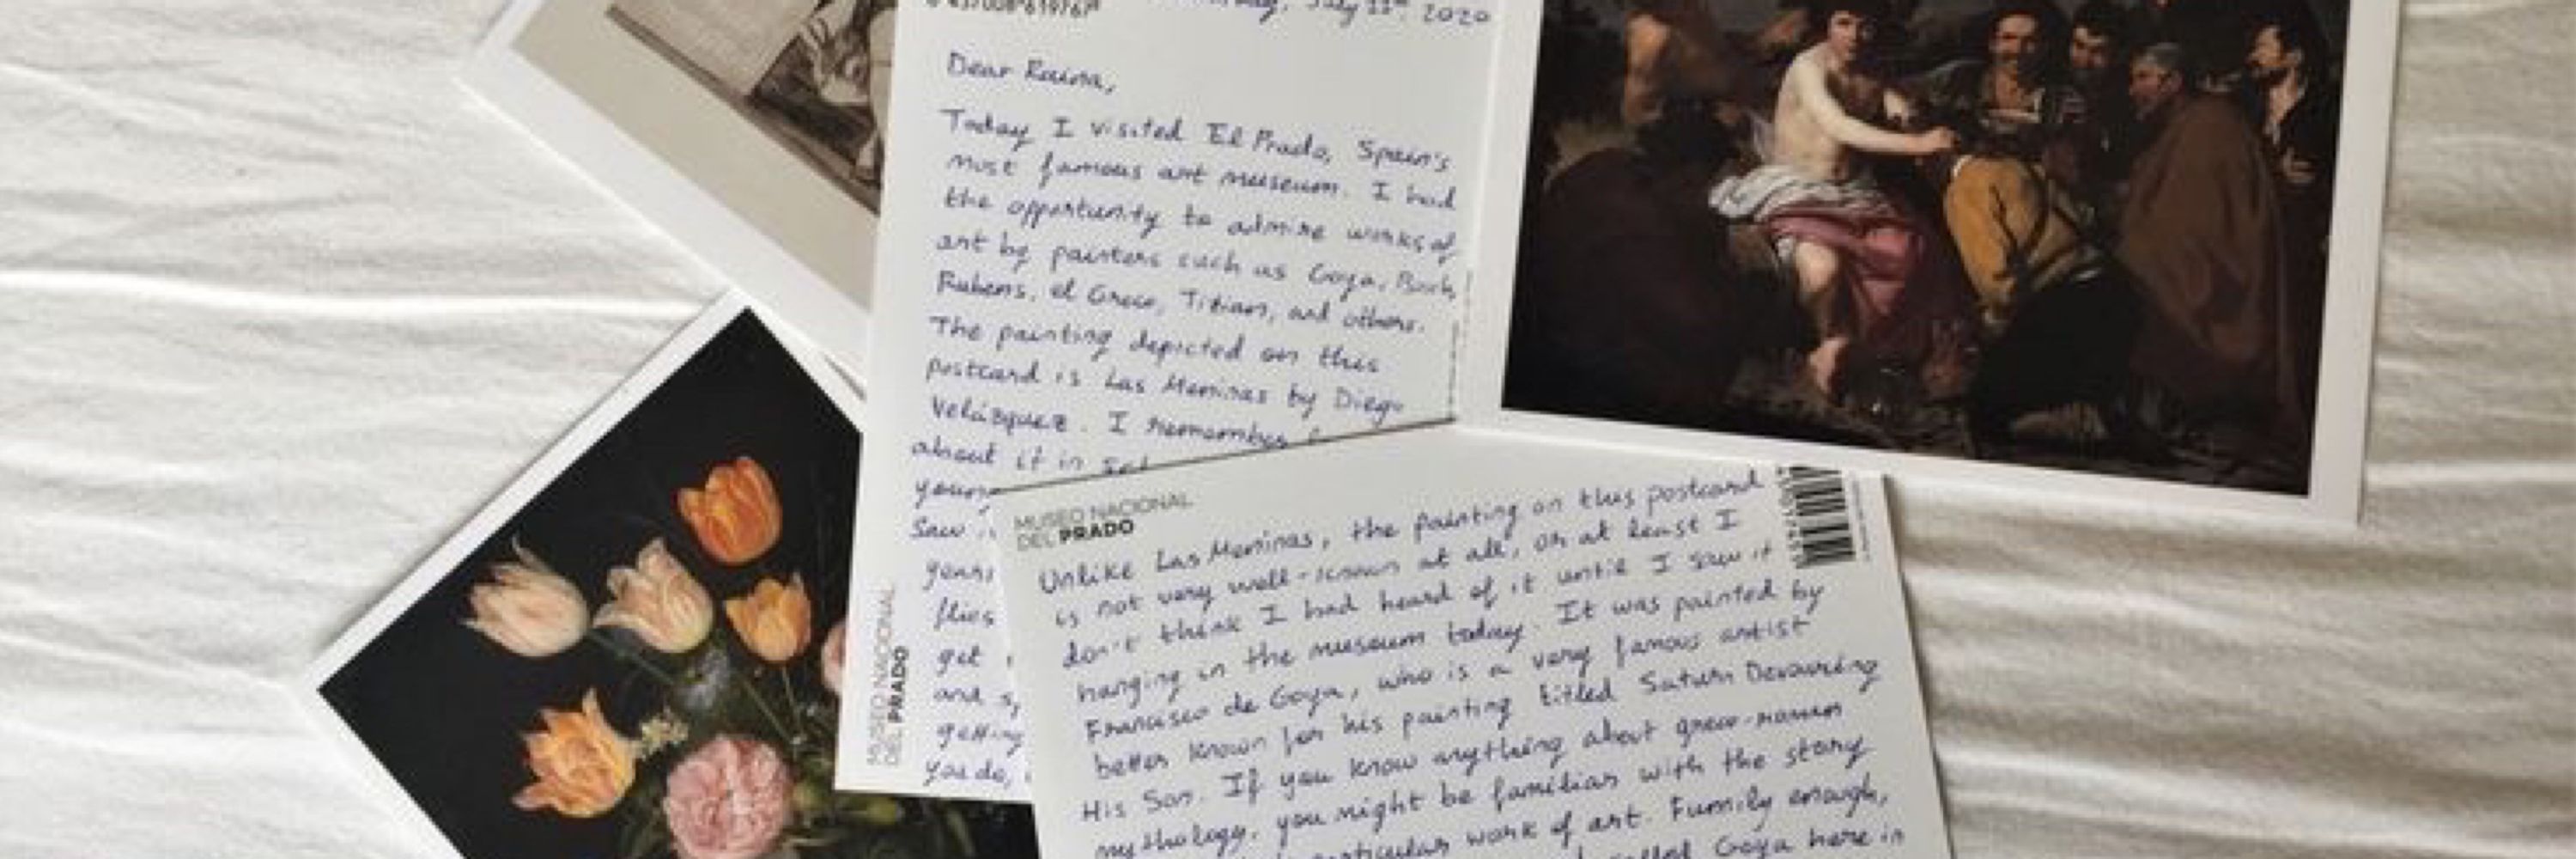 July 11th, 2020
Dear Raina,
Today I visited El Prado, Spain's
most famous art museum. I had
the opportunity to admire works of
art by painters such as Goya, Bosch,
Rubens, el Greco, Titian, and others.
The painting depicted on this
postcard is Las Meninas by Diego
Velázquez. I remember
about it in
saw
years
flies
get
and
getting
you do,
MUSEO NACIONAL
DEL PRADO
MUSEO NACIONAL
DEL PRADO
Unlike Las Meninas, the painting on this postcard
is not very well-known at all, or at least I
don't think I had heard of it until I saw it
hanging in the museum today. It was painted by
Francisco de Goya, who is a very famous artist
better known for his painting titled Saturn Devouring
His Son. If you know anything about greco-roman
mythology, you might be familiar with the story
particular work of art. Funnily enough,
called Goya here in